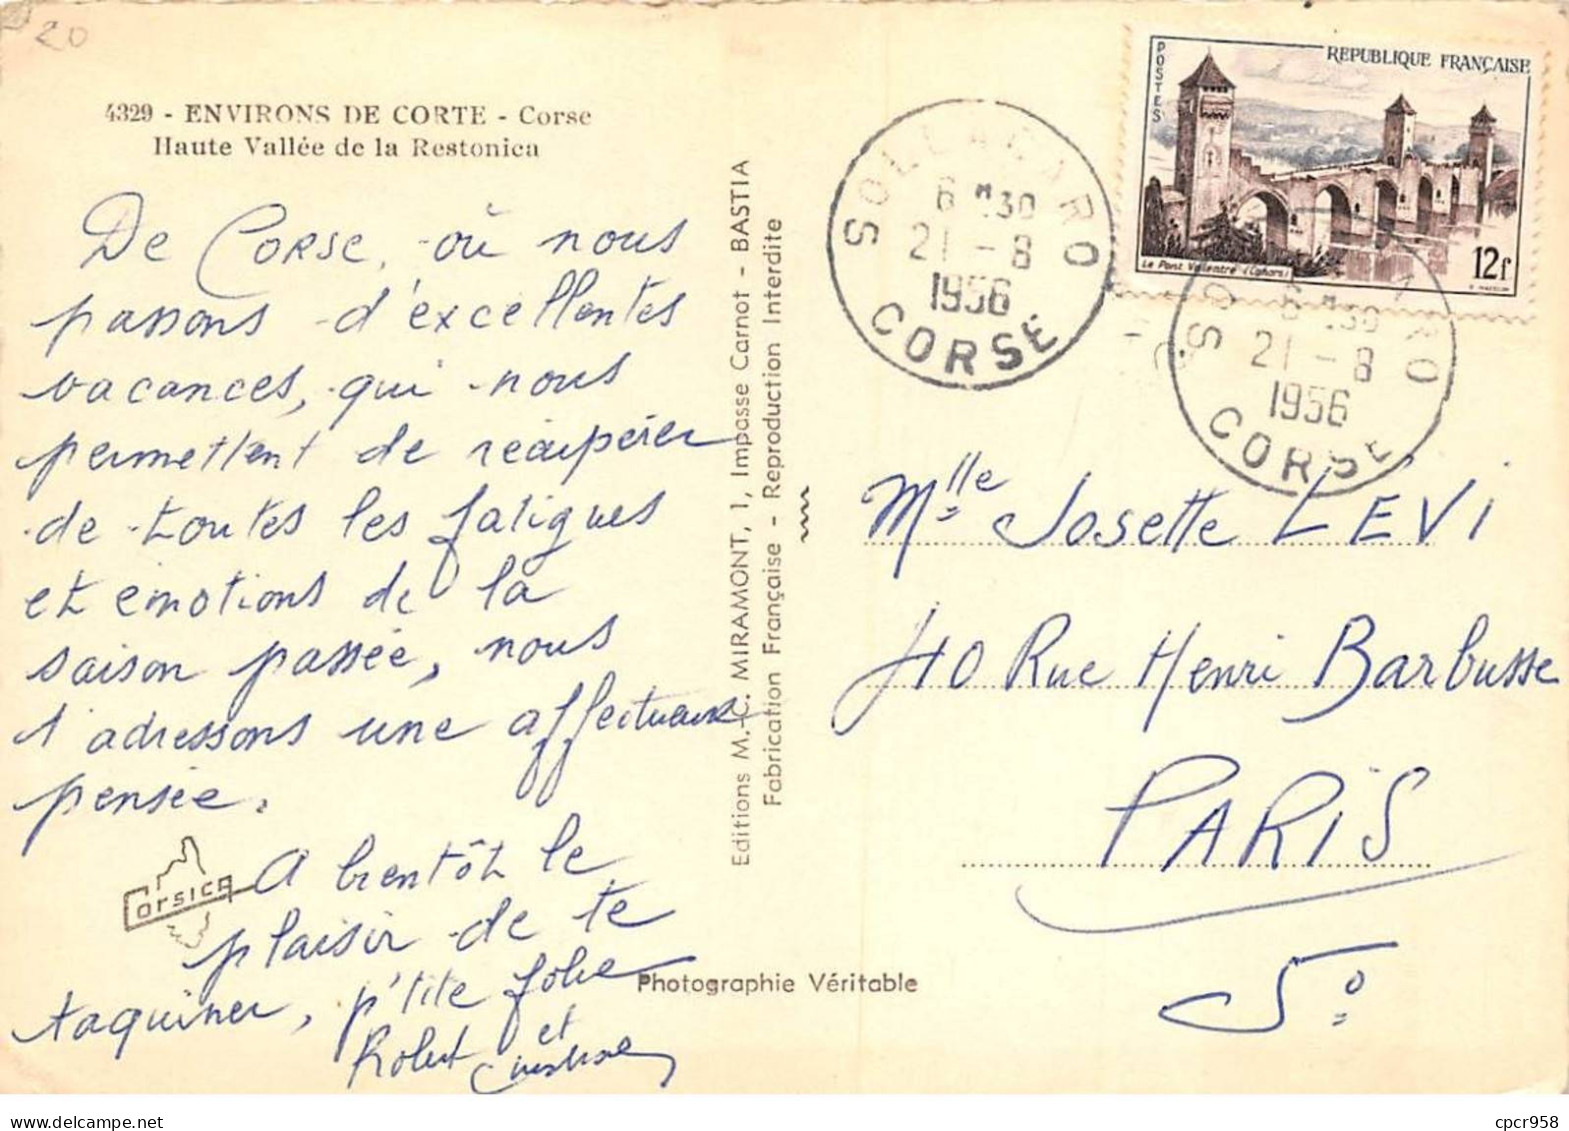 20
4329 - ENVIRONS DE CORTE - Corse
Haute Vallée de la Restonica
De Corse, où nous
passons d'excellentes
vacances, qui nous
permettent de récupérer
de toutes les fatigues
et émotions de la
saison passée, nous
t'adressons une affectueuse
pensée.
A bientôt le
plaisir de te
taquiner, p'tite folie
Robert et
Corsica
Editions M.-C. MIRAMONT, 1, Impasse Carnot - BASTIA
Fabrication Française - Reproduction Interdite
Photographie Véritable
SOLLACARO
6 H 30
21 - 8
1956
CORSE
POSTES
REPUBLIQUE FRANÇAISE
Le Pont Valentré (Cahors)
12f
6 H 30
21 - 8
1956
CORSE
Mlle Josette LEVI
40 Rue Henri Barbusse
PARIS
5º
cpcr958